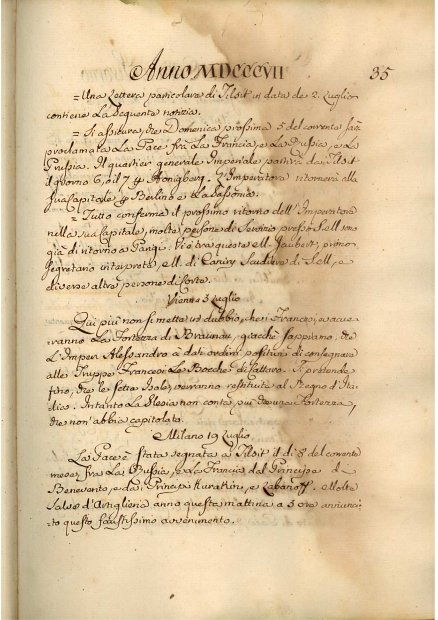 Anno MDCCCVII
35
= Una Lettera particolare di Tilsit in data de 2. Luglio
contiene La Sequente notizia.
= Si assicura, che Domenica prossima 5 del corrente sarà
proclamata La Pace frà La Francia, e La Russia, e La
Prussia. Il quartier generale Imperiale partirà da Tilsit
il giorno 6, o il 7 p Konigberg. L'Imperatore ritornerà alla
sua Capitale p Berlino e La Sassonia.
= Tutto conferma il prossimo ritorno dell'Imperatore
nella sua Capitale, molte persone di Servizio presso S. M. sono
già di ritorno a Parigi. Vi è tra queste M. Jaubert, primo
Segretario interprete, e M. di Canisy Scudiere di S. M., e
diverse altre persone di Corte.
Vienna 3 Luglio
Qui più non si mette in dubbio, che i Francesi evacue
ranno La Fortezza di Braunau, giacchè sappiamo, che
L'Imper. Alessandro à dati ordini positivi di consegnare
alle Truppe Francesi Le Bocche di Cattaro. Si pretende
fino, che le sette Isole, verranno restituite al Regno d'Ita
lia. Intanto La Slesia non conta più che una Fortezza,
che non abbia capitolato.
Milano 19 Luglio
La Pace è stata segnata a Tilsit il dì 8 del corrente
mese, fra La Russia, e La Francia dal Principe di
Benevento, e da Principi Kurakin, e Labanoff. Molte
Salve d'Artiglieria anno questa mattina a 5 ore annunci
to questo faustissimo avvenimento.